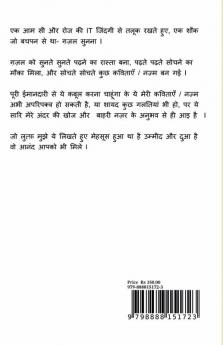 एक आम सी और रोज की IT जिंदगी से तलूक रखते हुए, एक शौक
जो बचपन से था- गज़ल सुनना ।
गज़ल को सुनते सुनते पढ़ने का रास्ता बना, पढ़ते पढ़ते सोचने का
मौका मिला, और सोचते सोचते कुछ कविताएँ / नज़्म बन गई ।
पूरी ईमानदारी से ये कबूल करना चाहूंगा के ये मेरी कविताएँ / नज़्म
अभी अपरिपक्व हो सकती है, या शायद कुछ गलतियां भी हो, पर ये
सारि मेरे अंदर की खोज और बाहरी नज़र के अनुभव से ही आइ है ।
जो लुत्फ़ मुझे ये लिखते हुए मेहसूस हुआ था है उम्मीद और दुआ है
वो आनंद आपको भी मिले ।
Price Rs 250.00
979-888815172-3
9 798888 151723